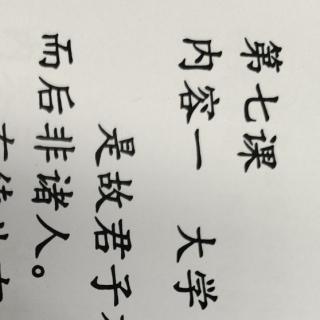 第七课
内容一 大学
是故君子
而后非诸人。